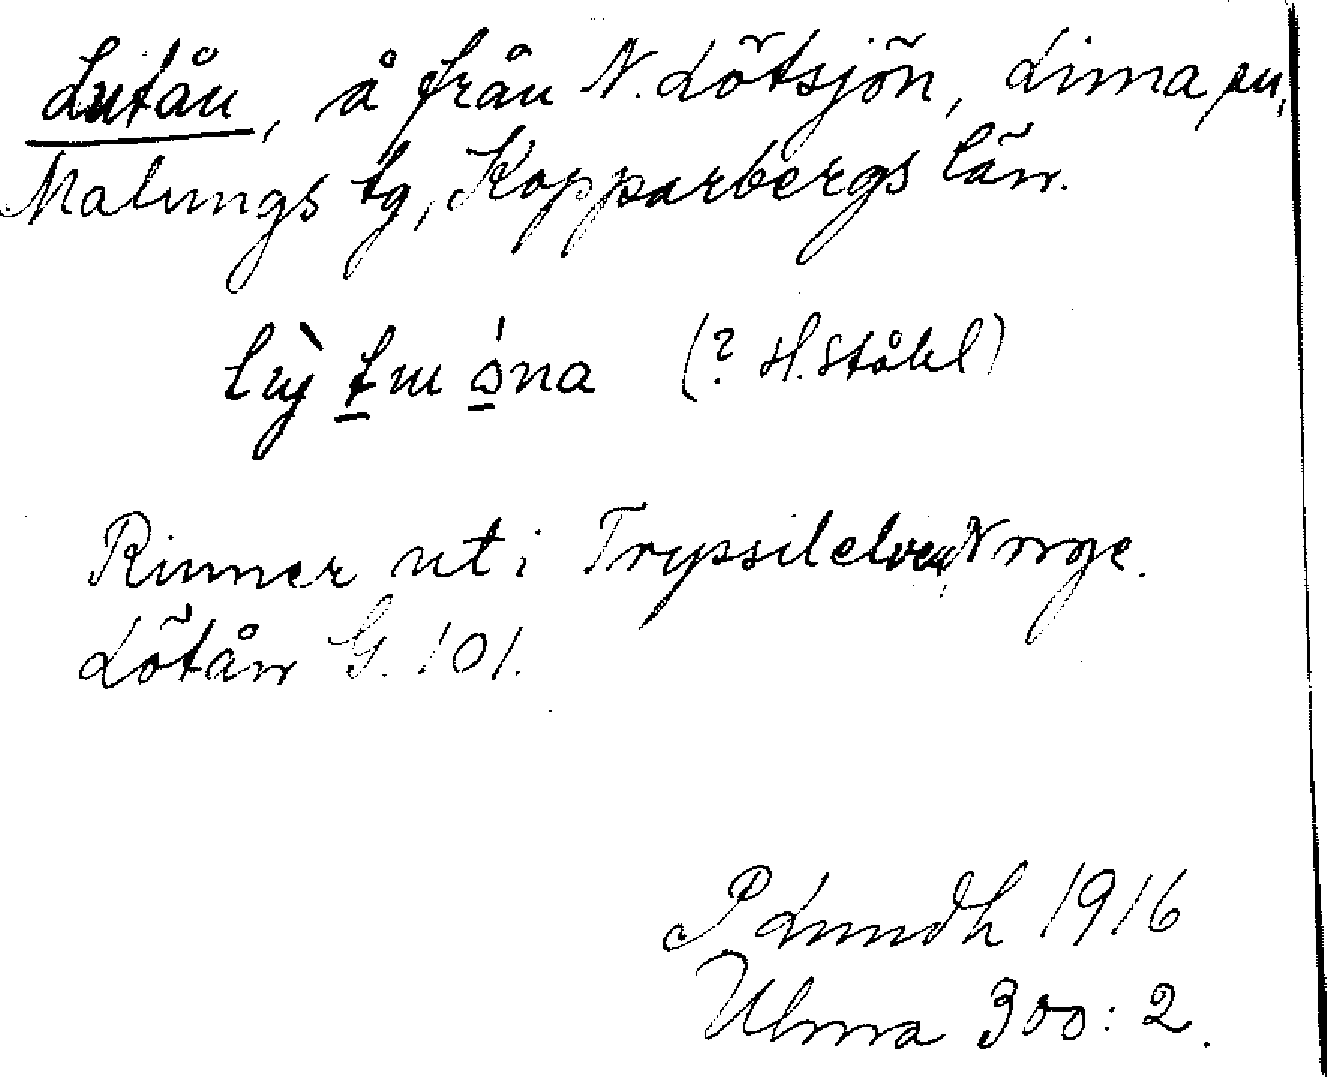 Lutån, å från N. Lötsjön, Lima sn,
Malungs tg, Kopparbergs län.
(? H. Ståhl)
Rinner ut i Trysilelven, Norge.
Lötån G. 101.
P Lundh 1916
Ulma 300: 2.